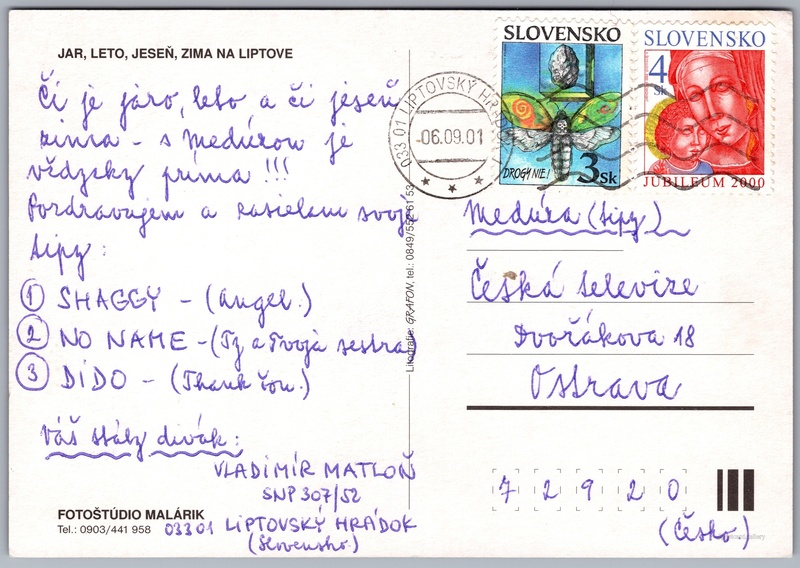 JAR, LETO, JESEŇ, ZIMA NA LIPTOVE
Či je jaro, leto a či jeseň
zima – s Medúzou je
vždzsky príma !!!
Pozdravujem a zasielam svoje
tipy :
1 SHAGGY – (Angel.)
2 NO NAME – (Ty a Tvoja sestra)
3 DIDO – (Thank You.)
Váš stály divák :
VLADIMÍR MATLOŇ
SNP 307/52
033 01 LIPTOVSKÝ HRÁDOK
(Slovensko)
FOTOŠTÚDIO MALÁRIK
Tel.: 0903/441 958
Litografie: GRAFON, tel.: 0849/552 61 53
033 01 LIPTOVSKÝ HRÁDOK
-06.09.01
SLOVENSKO
DROGY NIE!
3 Sk
SLOVENSKO
4 Sk
JUBILEUM 2000
Medúza (tipy)
Česká televize
Dvořákova 18
Ostrava
7 2 9 2 0
(Česko)